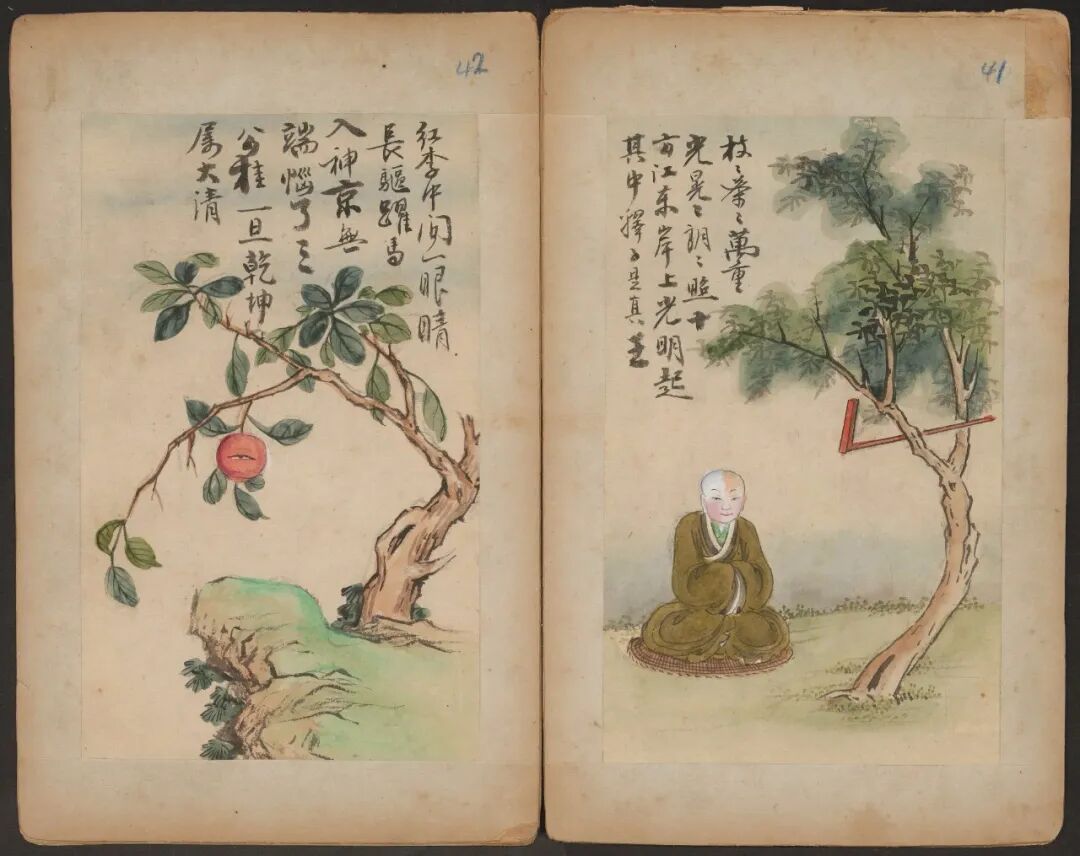 41
枝〻榮〻萬重
光晃〻朗〻照十
方江東岸上光明起
其中釋子是真主
42
紅李中间一眼睛
長驅躍馬
入神京無
端惱了三
公桂一旦乾坤
属大清